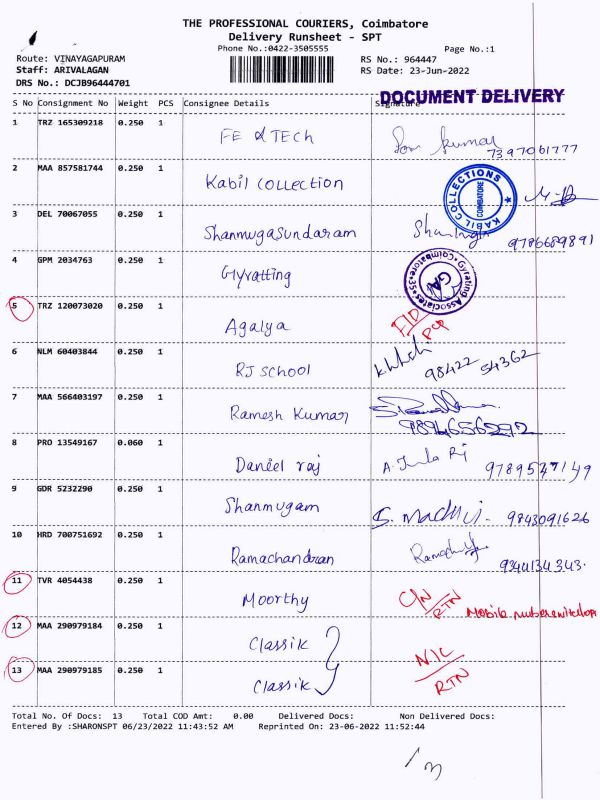 THE PROFESSIONAL COURIERS, Coimbatore
Delivery Runsheet - SPT
Phone No.:0422-3505555 Page No.:1
Route: VINAYAGAPURAM RS No.: 964447
Staff: ARIVALAGAN RS Date: 23-Jun-2022
DRS No.: DCJB96444701
DOCUMENT DELIVERY
S No Consignment No Weight PCS Consignee Details
1 TRZ 165309218 0.250 1 FE & TECH
7397061777
2 MAA 857581744 0.250 1 Kabil Collection KABIL COLLECTIONS COIMBATORE
3 DEL 70067055 0.250 1 Shanmugasundaram
9786689891
4 GPM 2034763 0.250 1 Gyratting Gyrating Associates Coimbatore-35 GA
5 TRZ 120073020 0.250 1 Agalya
6 NLM 60403844 0.250 1 RJ School 98422 54362
7 MAA 566403197 0.250 1 Ramesh Kumar
9894656292
8 PRO 13549167 0.060 1 Daniel raj
9 GDR 5232290 0.250 1 Shanmugam 9843091626
10 HRD 700751692 0.250 1 Ramachandran
9344134343.
11 TVR 4054438 0.250 1 Moorthy C/N
RTN Mobile
12 MAA 290979184 0.250 1 Classik
13 MAA 290979185 0.250 1 Classik RTN
Total No. Of Docs: 13 Total COD Amt: 0.00 Delivered Docs: Non Delivered Docs:
Entered By :SHARONSPT 06/23/2022 11:43:52 AM Reprinted On: 23-06-2022 11:52:44